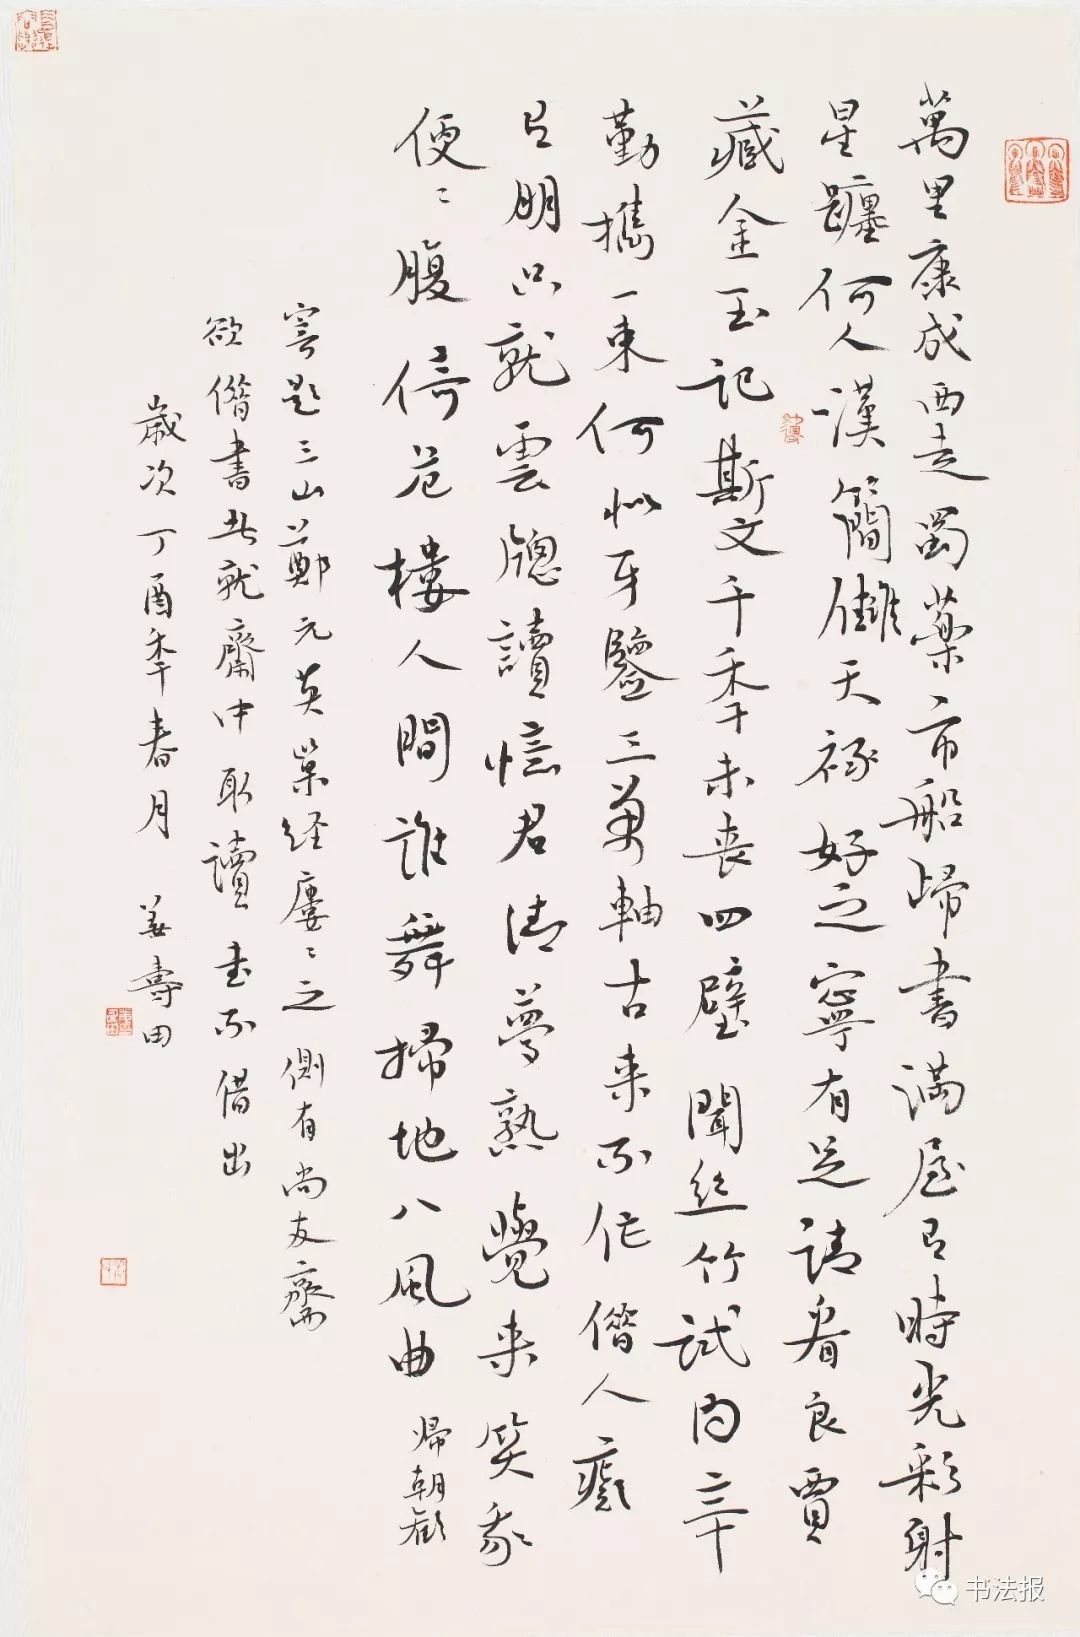 萬里康成西走蜀藥市船歸書滿屋有時光彩射
星躔何人漢簡雠天祿好之寧有足請看良賈
藏金玉記斯文千年未丧四壁聞丝竹試问辛
勤攜一束何似牙籤三萬軸古来不作借人癡
有朋只就雲牕讀憶君清夢熟覺来笑我
便〻腹倚危樓人間誰舞掃地八風曲 歸朝歡
寄题三山鄭元英巢经廔〻之側有尚友齋
欲借書者就齋中取讀書不借出
歲次丁酉年春月 姜壽田
书法报